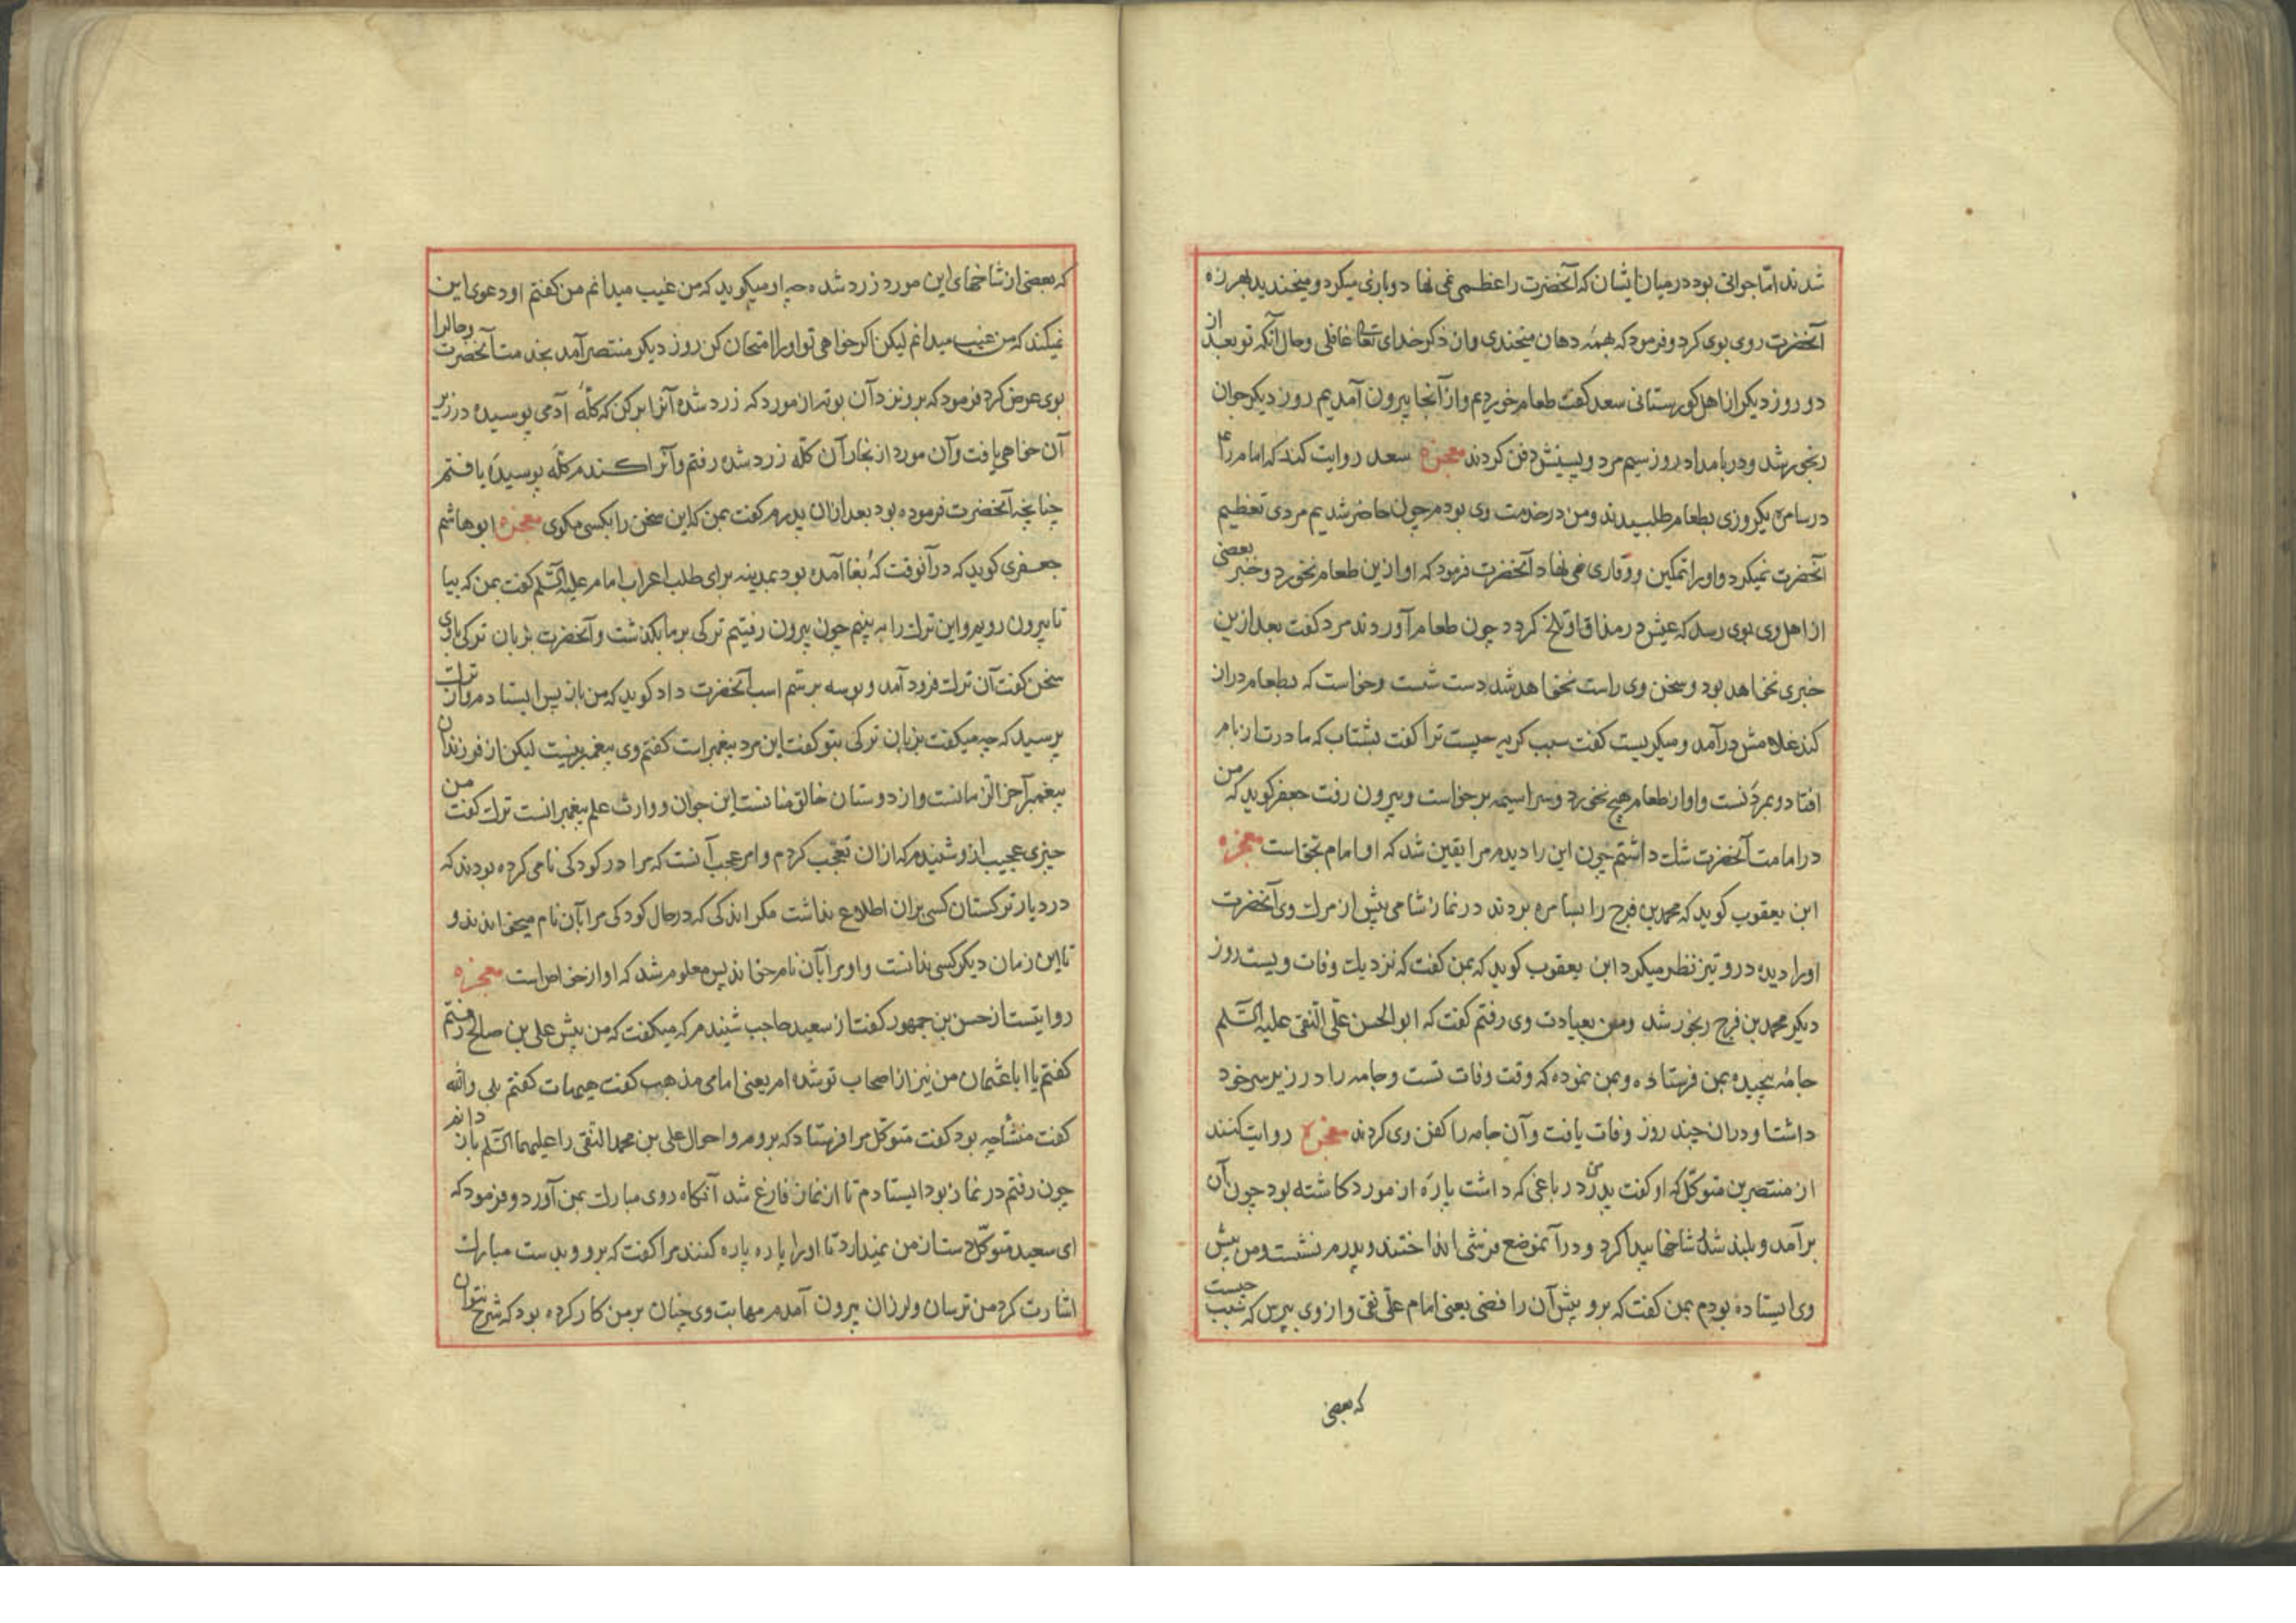 شدند اما جوانی بود در میان ایشان که آنحضرت را عظمی نمی نهاد و بازی میکرد و میخندید بهرزه
آنحضرت روی بوی کرد و فرمود که بهمه دهان میخندی و از ذکر خدای تعالی غافلی و حال آنکه تو بعد از
دو روز دیکر از اهل کورستانی سعد کفت طعام خوردیم و از آنجا بیرون آمدیم روز دیکر جوان
رنجور شد و در بامداد روز سیم مرد و پسینش دفن کردند معجزه سعد روایت کند که امام را
در سامره یکروزی بطعام طلبیدند و من در خدمت وی بودم چون حاضر شدیم مردی تعظیم
آنحضرت نمیکرد و او را تمکین و وقاری نمی نهاد آنحضرت فرمود که او ازین طعام نخورد و خبر بعضی
از اهل وی بوی رسد که عیش در مذاق او تلخ کردد چون طعام آوردند مرد کفت بعد ازین
خبری نخواهد بود و سخن وی راست نخواهد شد دست شست و خواست که بطعام دراز
کند غلامش درآمد و میکریست کفت سبب کریه چیست ترا کفت بشتاب که مادرت از بام
افتاد و بمردنست و او از طعام هیچ نخورد و سراسیمه برخواست و بیرون رفت جعفر کوید که من
در امامت آنحضرت شک داشتم چون این را دیدم مرا یقین شد که او امام بحق است معجزه
ابن یعقوب کوید که محمد بن فرج را بسامره بردند در نماز شامی پیش از مرک وی آنحضرت
او را دید و در و تیز نظر میکرد ابن یعقوب کوید که بمن کفت که نزدیک وفات ویست روز
دیکر محمد بن فرج رنجور شد و من بعیادت وی رفتم کفت که ابوالحسن علی النقی علیه السلم
جامه پیچیده بمن فرستاده و بمن نموده که وقت وفات تست و جامه را در زیر سر خود
داشت و در ان چند روز وفات یافت و آن جامه را کفن وی کردند معجزه روایت کنند
از منتصر بن متوکل که او کفت پدرم در باغی که داشت پارۀ از مورد کاشته بود چون آن
برآمد و بلند شد شاخها پیدا کرد و در آنموضع فرشی انداختند و پدرم نشست و من پیش
وی ایستاده بودم بمن کفت که برو پیش آن رافضی یعنی امام علی نقی و از وی بپرس که سبب چیست
که بعضی
که بعضی از شاخهای این مورد زرد شده چه او میکوید که من غیب میدانم من کفتم او دعوی این
نمیکند که من غیب میدانم لیکن اکر خواهی تو او را امتحان کن روز دیکر منتصر آمد بخدمت آنحضرت و حال را
بوی عرض کرد فرمود که برو نزد آن بوته از مورد که زرد شده آنرا بر کن که کلۀ آدمی پوسیده در زیر
آن خواهی یافت و آن مورد از بخار آن کله زرد شده رفتم و آنرا کندم کلۀ پوسیده یافتم
چنانچه آنحضرت فرموده بود بعد ازان پدرم کفت بمن که این سخن را بکسی مکوی معجزه ابو هاشم
جعفری کوید که در آنوقت که بغا آمده بود بمدینه برای طلب اعراب امام علیه السلم کفت بمن که بیا
تا بیرون رویم و این ترک را به بینیم چون بیرون رفتیم ترکی بر ما بکذشت و آنحضرت بزبان ترکی با وی
سخن کفت آن ترک فرود آمد و بوسه بر سم اسب آنحضرت داد کوید که من باز پس ایستادم و از ترک
پرسید که چه میکفت بزبان ترکی بتو کفت این مرد پیغمبر است کفتم وی پیغمبر نیست لیکن از فرزندان
پیغمبر آخر الزمانست و از دوستان خالق منانست این جوان و وارث علم پیغمبرانست ترک کفت من
چیزی عجیب ازو شنیدم که ازان تعجب کردم و امر عجب آنست که مرا در کودکی نامی کرده بودند که
در دیار ترکستان کسی بران اطلاع نداشت مکر اندکی که در حال کودکی مرا بآن نام میخواندند و
تا این زمان دیکر کسی ندانست و او مرا بآن نام خواند پس معلوم شد که او از خواص است معجزه
روایتست از حسن بن جمهور کفت از سعید حاجب شنیدم که میکفت که من پیش علی بن صالح رفتم
کفتم یا ابا عثمان من نیز از اصحاب تو شده ام یعنی امامی مذهب کفت هیهات کفتم بلی والله
کفت منشا چه بود کفت متوکل مرا فرستاد که بروم و احوال علی بن محمد التقی را علیهما السلم باز دانم
چون رفتم در نماز بود ایستادم تا از نماز فارغ شد آنکاه روی مبارک بمن آورد و فرمود که
ای سعید متوکل دست از من نمیدارد تا او را پاره پاره کنند مرا کفت که برو و بدست مبارک
اشارت کرد من ترسان و لرزان بیرون آمدم مهابت وی چنان بر من کار کرده بود که شرح نتوان